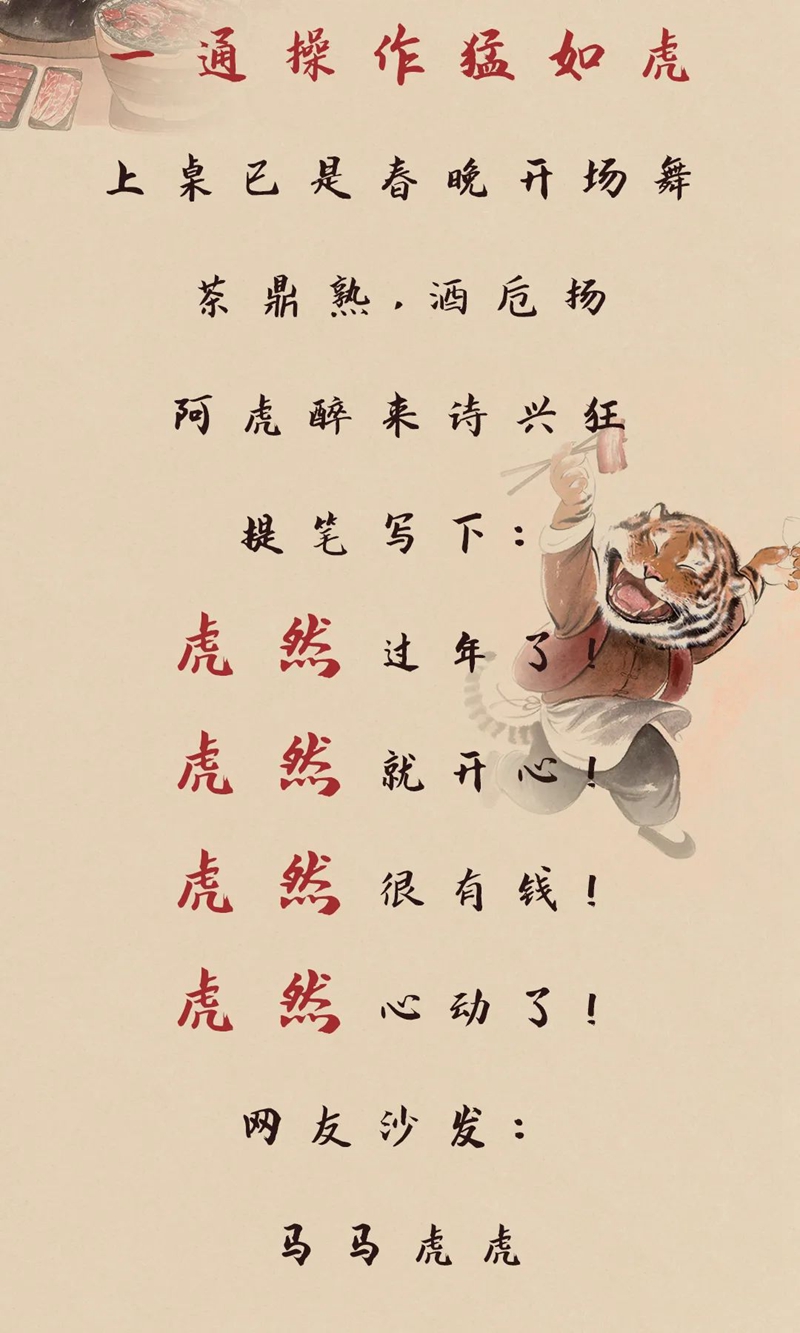 一通操作猛如虎
上桌已是春晚开场舞
茶鼎熟，酒卮扬
阿虎醉来诗兴狂
提笔写下：
虎然过年了！
虎然就开心！
虎然很有钱！
虎然心动了！
网友沙发：
马马虎虎